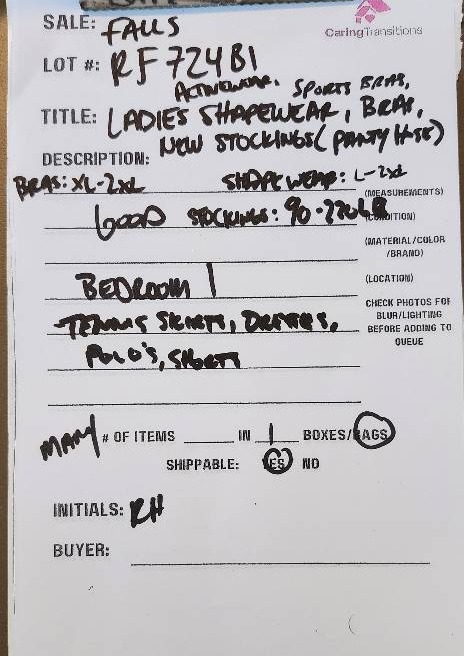 SALE: FALLS
CaringTransitions
LOT #: RF724B1
ACTIVEWEAR, SPORTS BRAS,
TITLE: LADIES SHAPEWEAR, BRAS,
NEW STOCKINGS (PANTY HOSE)
DESCRIPTION:
BRAS: XL-2XL SHAPEWEAR: L-2XL
(MEASUREMENTS)
GOOD STOCKINGS: 90-220LB
(CONDITION)
(MATERIAL/COLOR
/BRAND)
BEDROOM 1 (LOCATION)
TENNIS SKIRTS, DRESSES,
POLO'S, SHORTS
CHECK PHOTOS FOR
BLUR/LIGHTING
BEFORE ADDING TO
QUEUE
MANY # OF ITEMS IN 1 BOXES/BAGS
SHIPPABLE: YES NO
INITIALS: RH
BUYER: